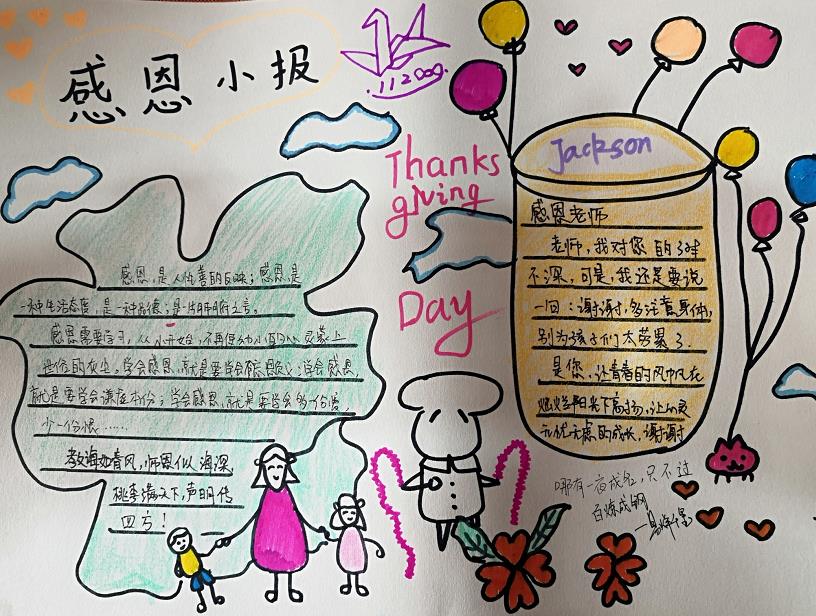 感恩小报
11 2009.
Thanks
giving
Day
Jackson
感恩老师
老师，我对您的了解
不深，可是，我还是要说
一回：谢谢，多注意身体，
别为孩子们太劳累了.
是您，让青春的风帆在
阳光下高扬，让心灵
无忧无虑的成长，谢谢
感恩，是人性善的反映；感恩，是
一种生活态度，是一种品德，是
感恩需要学习，从小开始，不再
世俗的灰尘，学会感恩，就是要学会 学会感恩，
就是要学会 学会感恩，就是要学会多一份爱，
少一份恨……
教诲如春风，师恩似海深
桃李满天下，声明传
四方！
哪有一夜成名，只不过
百炼成钢